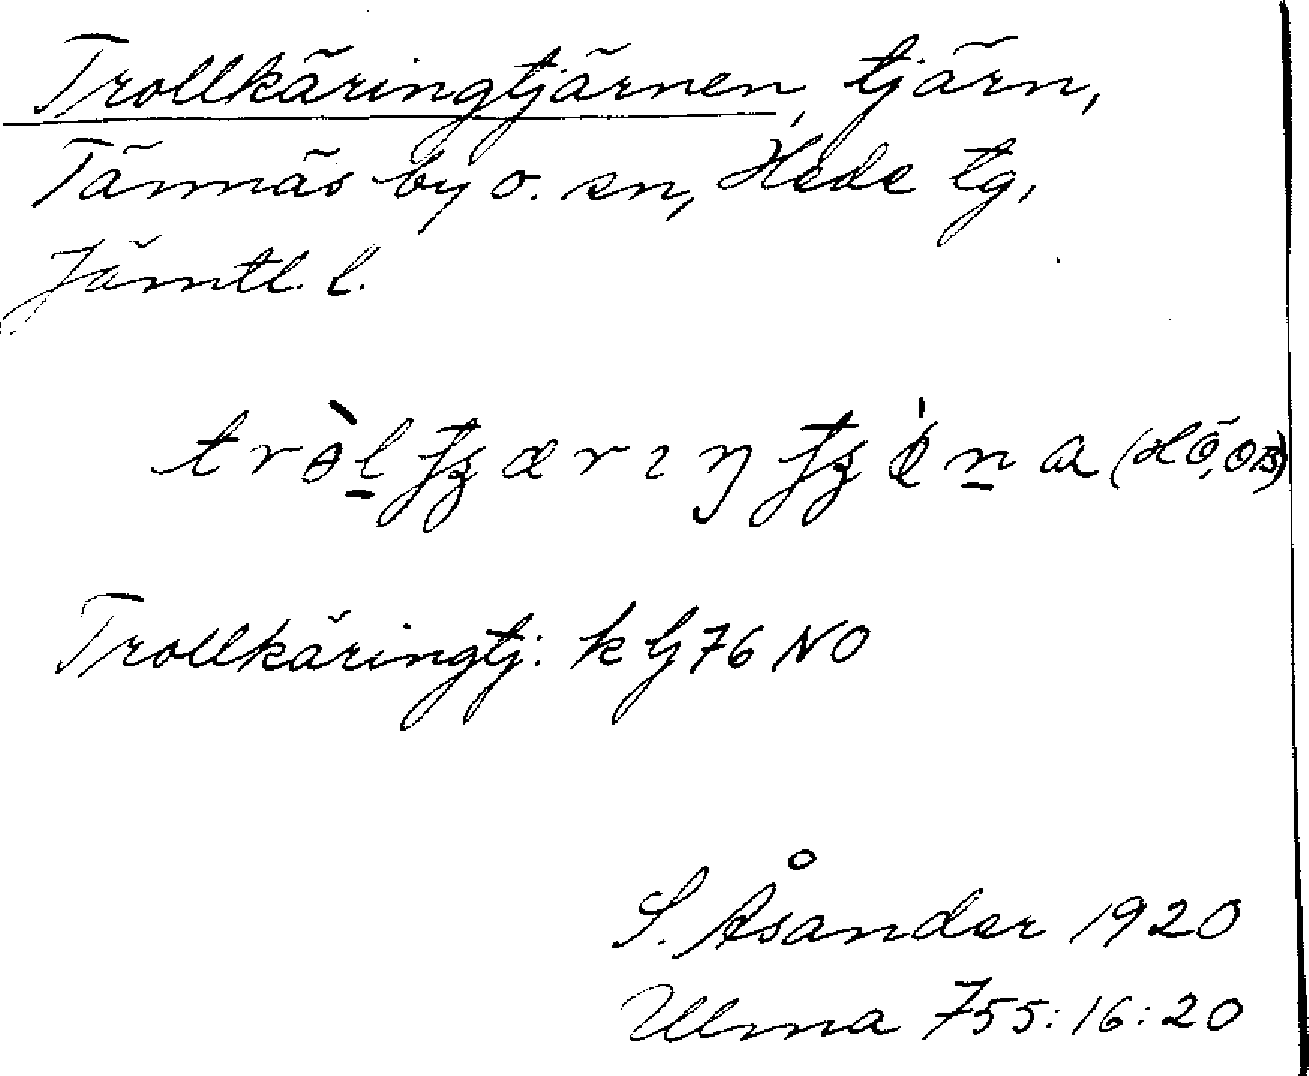 Trollkäringtjärnen, tjärn,
Tännäs by o. sn, Hede tg,
Jämtl. l.
Trollkäringtj: k bj 76 NO
S. Åsander 1920
Ulma 755:16:20